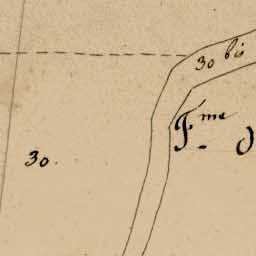 30 bis
Fme
30.